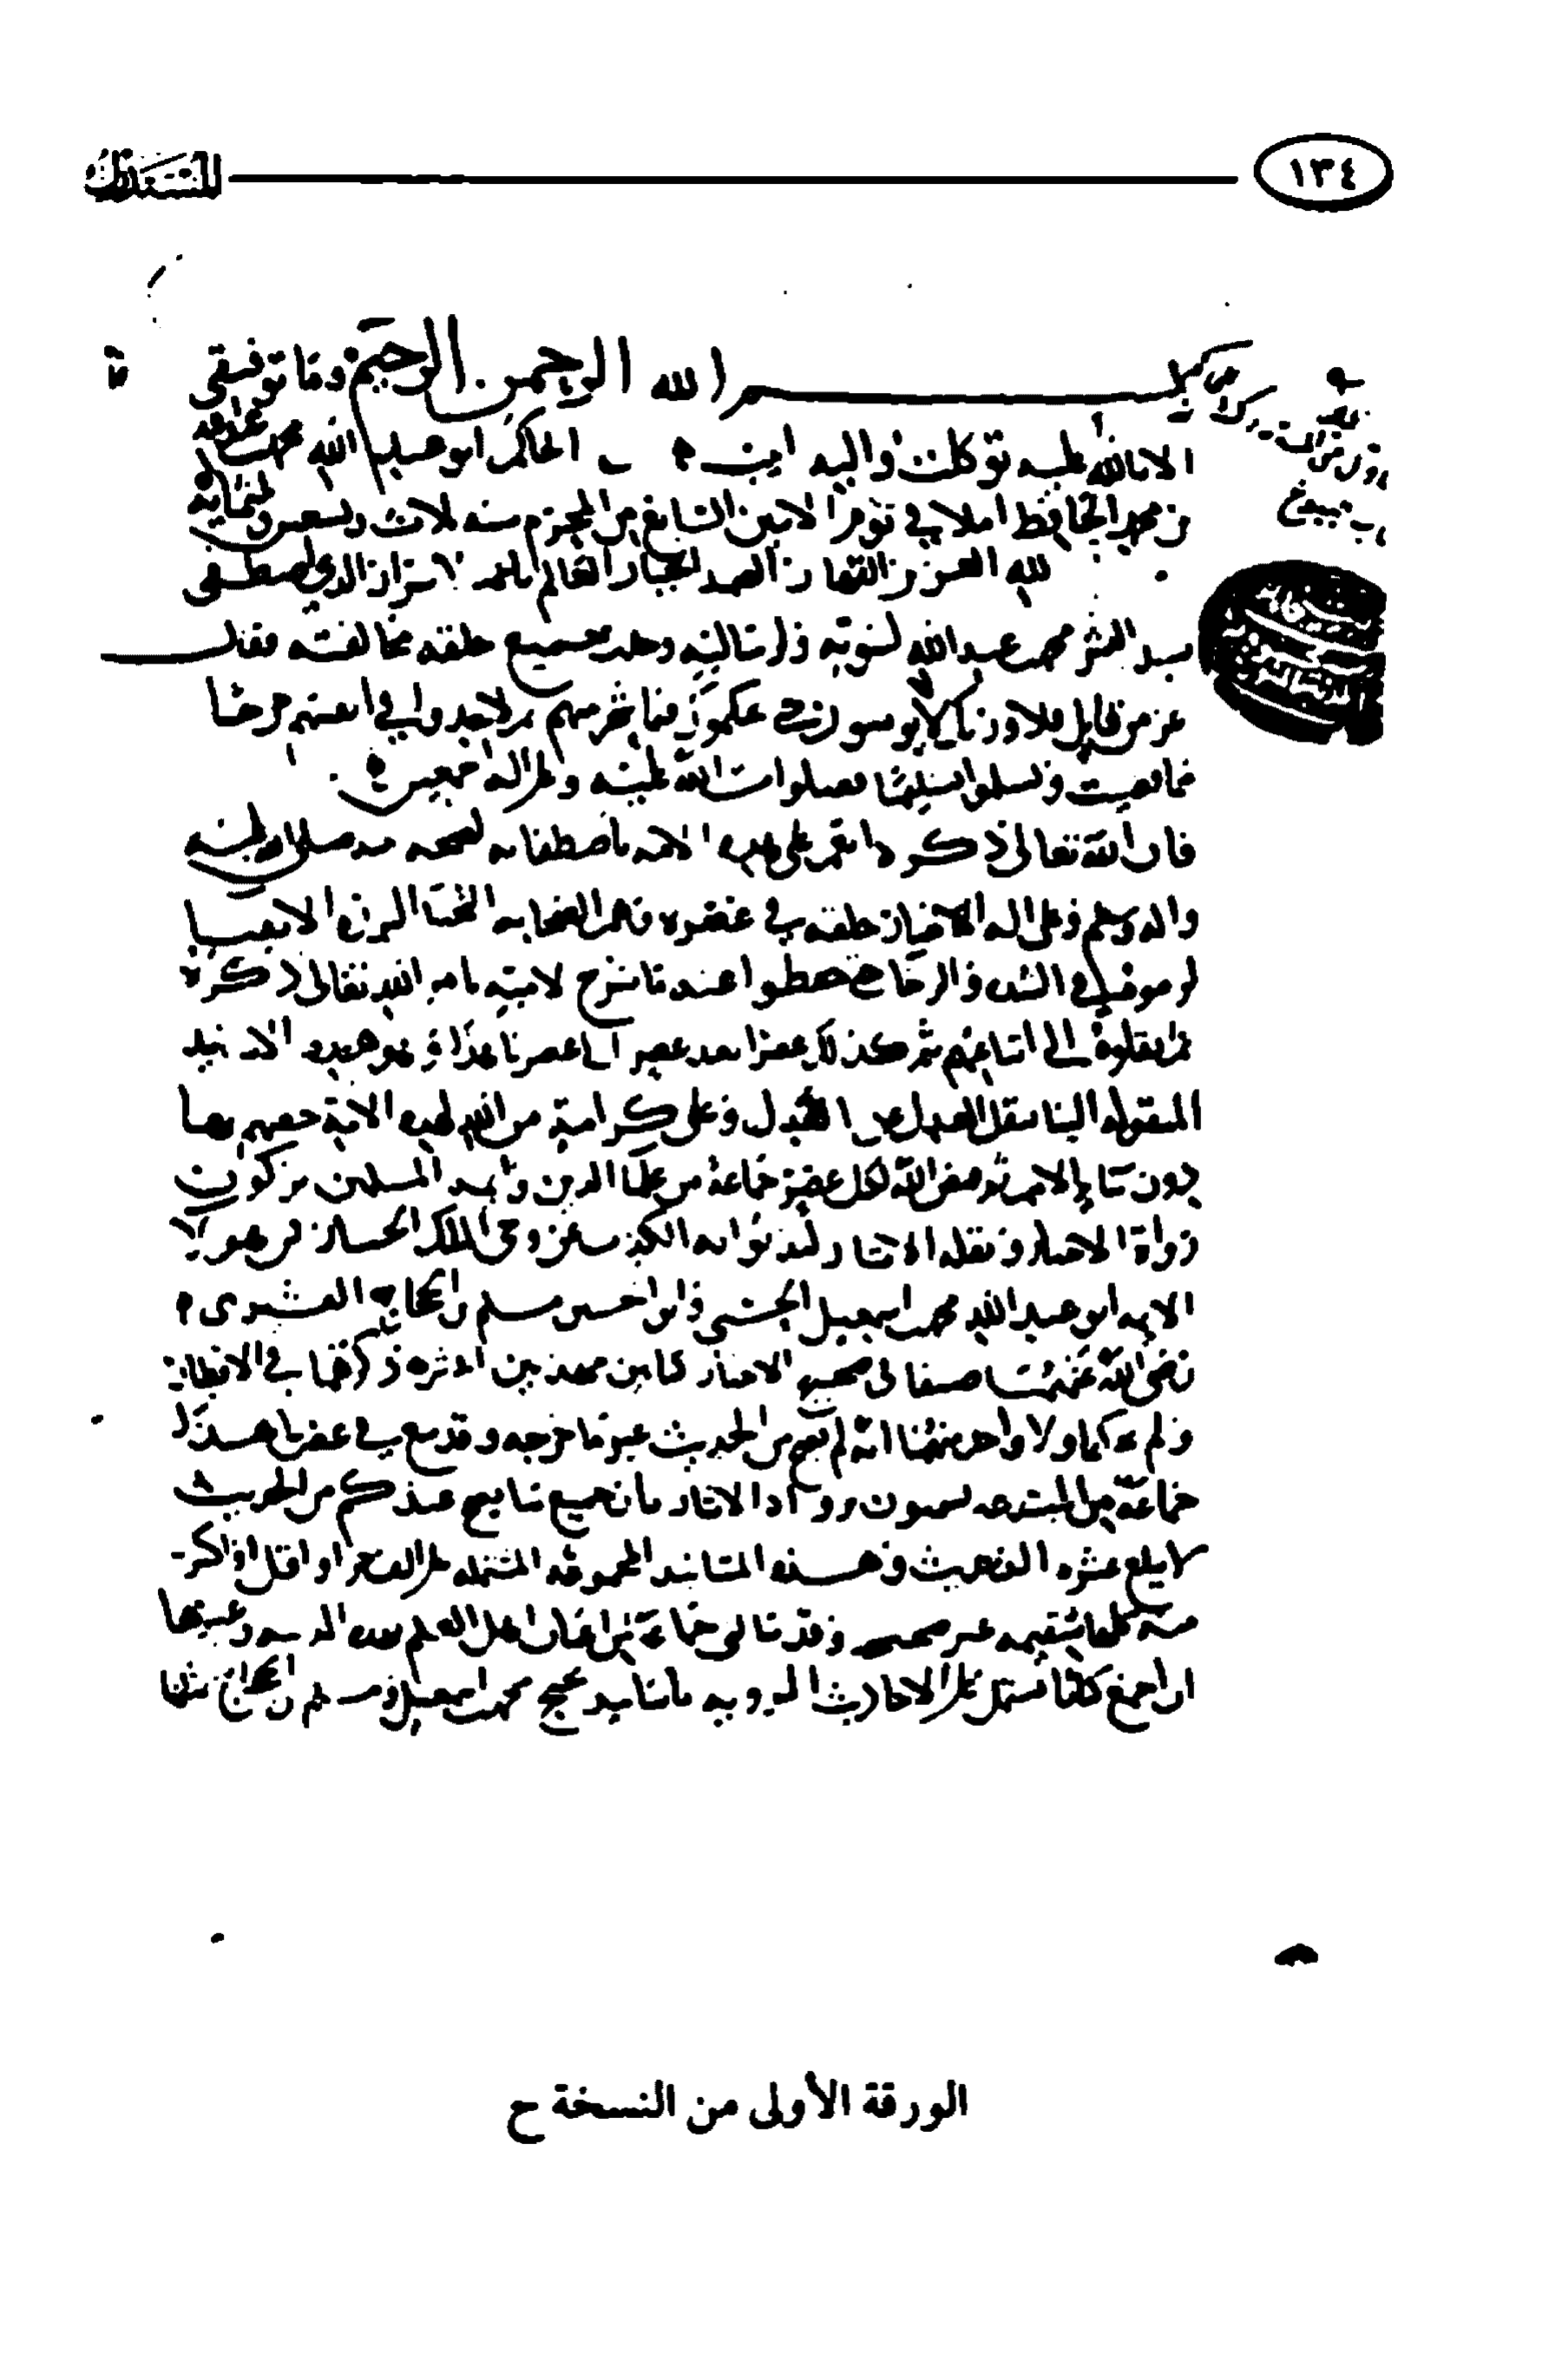 ١٣٤ المستدرك
بسم الله الرحمن الرحيم وما توفيقي
الا بالله عليه توكلت واليه انيب الحاكم ابو عبد الله محمد بن عبد الله
بن محمد الحافظ املا في يوم الاثنين السابع من المحرم سنه ثلاث وتسعين وثلثمايه
لله العزيز القهار الصمد الجبار العالم بالاسرار الذي اصطفى
سيد البشر محمد بن عبد الله لنبوته ورسالته وحذر جميع خلقه مخالفته فقال
عز من قايل فلا وربك لا يومنون حتى يحكموك فيما شجر بينهم ثم لا يجدوا في انفسهم حرجا
مما قضيت ويسلموا تسليما صلوات الله عليه وعلى اله اجمعين
فان الله تعالى ذكره انعم على هذه الامه باصطفايه لصحبه نبيه صلى الله عليه
واله وسلم وعلى اله اخيار خلقه في عصره وهم الصحابه النجبا البررة الاتقيا
لزموه في الشده والرخا حتى حفظوا عنه ما شرع لامته بامر الله تعالى ذكره
ثم نقلوه الى اتباعهم ثم كذلك عصرا بعد عصر الى عصرنا هذا وهو هذه الاسانيد
المنقوله الينا بنقل العدل عن العدل وهي كرامة من الله لهذه الامة خصهم بها
دون ساير الامم ثم قيض الله لكل عصر جماعة من علما الدين وايمه المسلمين يزكون
رواة الاخبار ونقله الاثار ليذبوا به الكذب عن وحي الملك الجبار فمن هولا
الايمه ابو عبد الله محمد بن اسمعيل الجعفي وابو الحسين مسلم بن الحجاج القشيري
رضي الله عنهما صنفا في صحيح الاخبار كتابين مهذبين انتشر ذكرهما في الاقطار
ولم يحكما ولا واحد منهما انه لم يصح من الحديث غير ما خرجه وقد نبغ في عصرنا هذا
جماعة من المبتدعه يشمتون برواة الاثار بان جميع ما يصح عندكم من الحديث
لا يبلغ عشره الف حديث وهذه المسانيد المجموعه المشتمله على الف جزء او اقل او اكثر
منه كلها سقيمه غير صحيحه وقد سالني جماعة من اعيان اهل العلم بهذه المدينه وغيرها
ان اجمع كتابا يشتمل على الاحاديث المرويه باسانيد يحتج محمد بن اسمعيل ومسلم بن الحجاج بمثلها
الورقة الأولى من النسخة ح